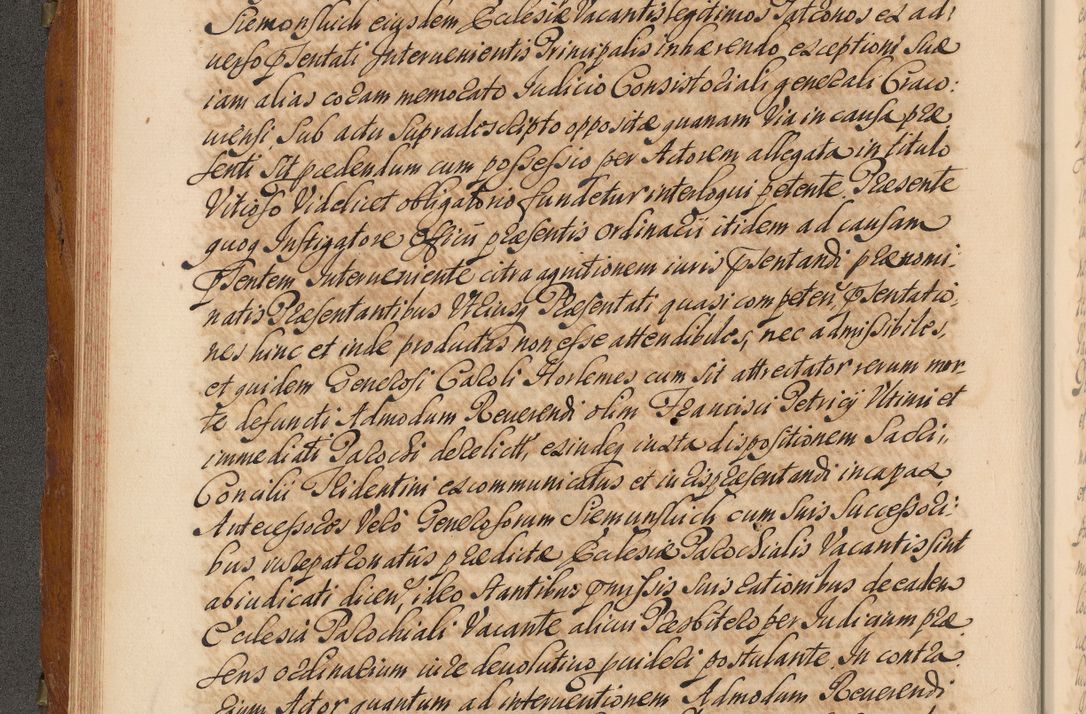 Siemonskich eiusdem Ecclesiæ Vacantis legitimos Patronos ex ad:
uerso Psentati Interuenientis Principalis inhærendo exceptioni suæ
iam alias coram memorato Iudicio Consistoriali generali Craco:
uiensi, sub actu supradescripto oppositæ quanam via in causa præ
senti sit procedendum cum possessio per Actorem allegata in titulo
Vitioso Videlicet obligatorio fundetur interloqui petente. Præsente
quoq Instigatore Officii præsentis ordinarii itidem ad causam
Psentem Interueniente citra agnitionem iuris Psentandi prænomi:
natis Præsentantibus Vtriusq Præsentati quasi competen, Psentatio:
nes hinc et inde productas non esse attendibiles, nec admissibiles,
et quidem Generosi Caroli Horlemes cum sit attrectator rerum mor
te defuncti Admodum Reuerendi olim Francisci Petricij Vltimi et
immediati Parochi derelict, exindeq iuxta dispositionem Sacri,,
Concilii Tridentini excommunicatus et iuris præsentandi incapax
Antecessores Verò Generosorum Siemunskich cum suis Successori:
bus iure patronatus prædictæ Ecclesiæ Parochialis Vacantis sint
abiudicati dicen, ideo stantibus Pmissis suis rationibus de eadem
Ecclesiâ Parochiali Vacante alicui Præsbitero per Iudicium præ
sens ordinarium iure deuolutiuo prouideri postulante. In contra
rium Actor quantum ad interuentionem Admodum Reuerendi